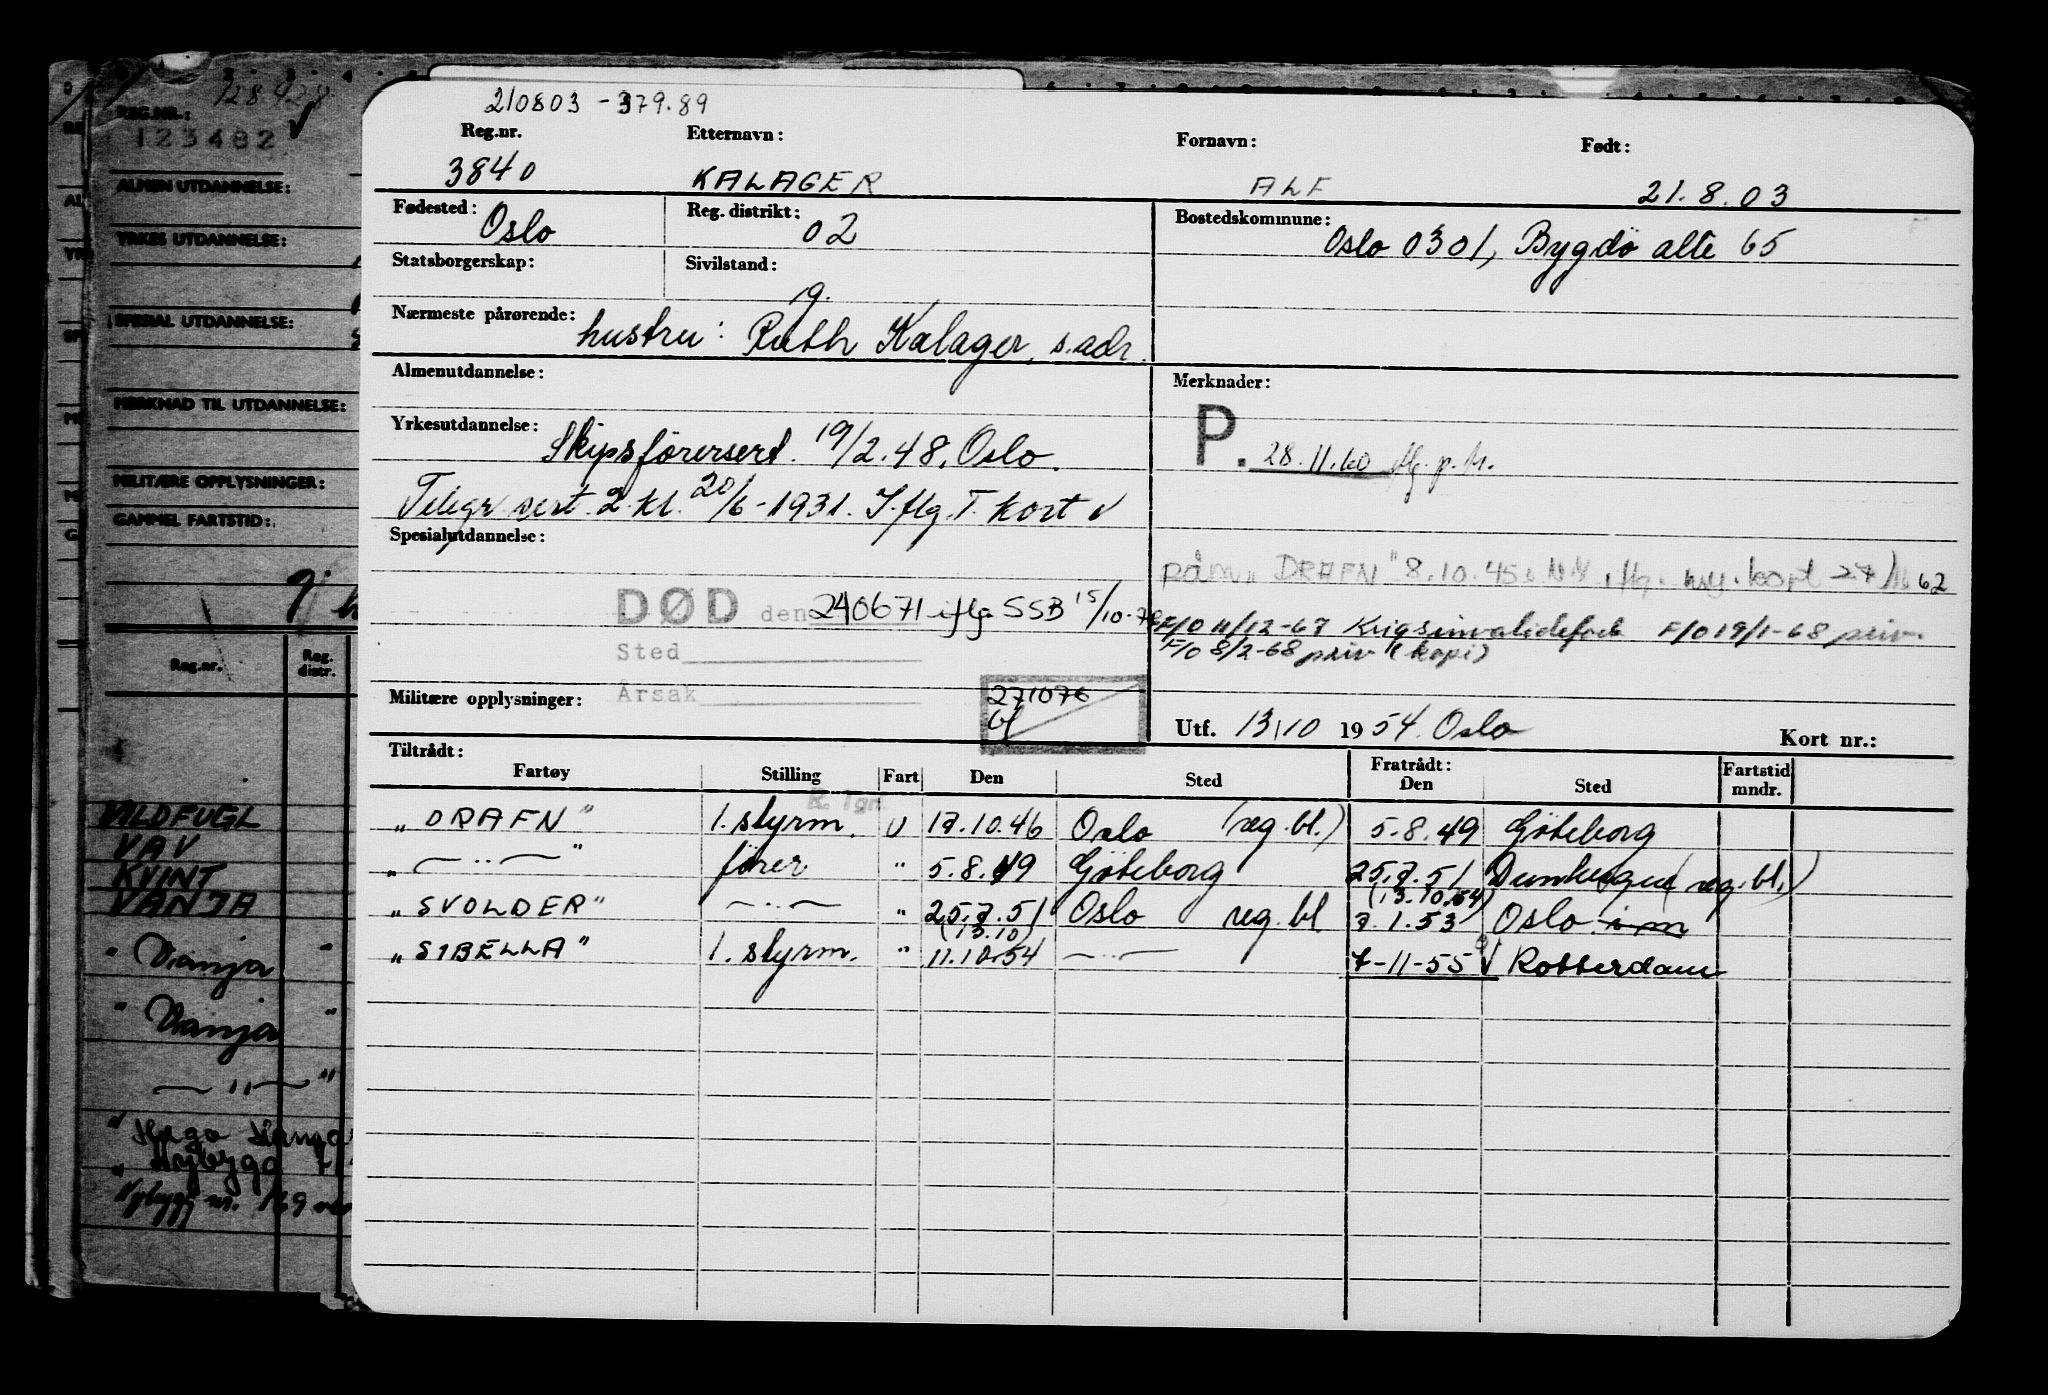 210803 - 379.89
Reg.nr. Etternavn: Fornavn: Født:
3840 KALAGER ALF 21.8.03
Fødested: Oslo Reg. distrikt: 02 Bostedskommune: Oslo 0301, Bygdö alle 65
Statsborgerskap: Sivilstand: g.
Nærmeste pårørende: hustru: Ruth Kalager, s. adr.
Almenutdannelse: Merknader:
Yrkesutdannelse: Skipsförersert. 19/2.48, Oslo. P. 28.11.60
Telegr. sert. 2. kl. 20/6-1931. I flg. T. kort
Spesialutdannelse:
påm. "DRAFN" 8.10.45 62
DØD den 240671 iflg SSB 15/10-76
F/O 11/12-67 Krigsinvalideforb F/O 19/1-68 priv.
Sted
F/O 8/2-68 priv (kopi)
Årsak
Militære opplysninger: 271076
bf
Utf. 13/10 1954. Oslo Kort nr.:
Tiltrådt: Fratrådt:
Fartøy Stilling Fart Den Sted Den Sted Fartstid mndr.
R. Tgr.
"DRAFN" 1. styrm. U 17.10.46 Oslo (reg. bl.) 5.8.49 Göteborg
" — " — " fører " 5.8.49 Göteborg 25.7.51 (reg. bl.)
(13.10.54)
"SVOLDER" — " — " 25.7.51 Oslo reg. bl 7.1.53 Oslo i m
(13.10)
"SIBELLA" 1. styrm. " 11.10.54 — " — 7-11-55 Rotterdam
128428
REG.NR.:
123482
ALMEN UTDANNELSE:
YRKES UTDANNELSE:
SPESIAL UTDANNELSE:
MERKNAD TIL UTDANNELSE:
MILITÆRE OPPLYSNINGER:
GAMMEL FARTSTID:
Reg.nr. Reg. distr.
VILDFUGL
VAV
KVINT
VANJA
" Vanja "
" Vanja "
— " — "
Nybygg nr. 169